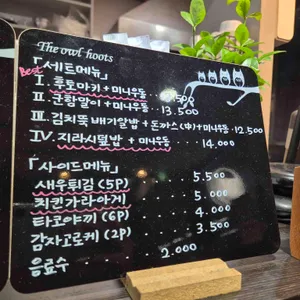 The owl hoots
「세트메뉴」
Best I. 후토마키 + 미니우동
II. 군함말이 + 미니우동 ·· 13.500
III. 김치뚝배기알밥 + 돈까스(中) + 미니우동 · 12.500
IV. 지라시덮밥 + 미니우동 ·· 14.000
「사이드메뉴」
새우튀김 (5P) ···· 5.500
치킨가라아게 ···· 5.000
타코야끼 (6P) ···· 4.000
감자고로케 (2P) ···· 3.500
음료수 ···· 2.000